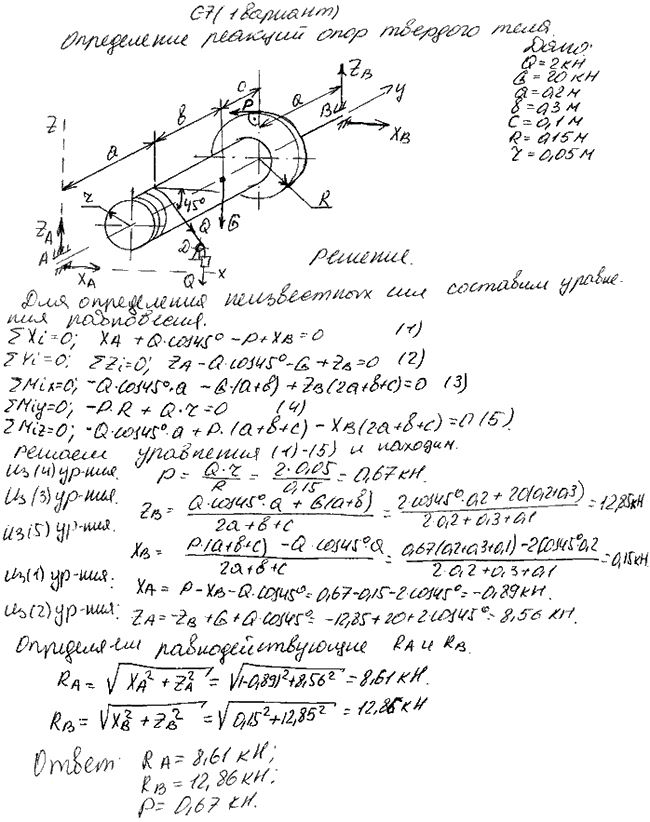 С7 (1 вариант)
Определение реакций опор твердого тела.
Дано:
Q = 2 кН
G = 20 кН
a = 0,2 м
b = 0,3 м
c = 0,1 м
R = 0,15 м
r = 0,05 м
Z
a
b
c
a
P
Z_B
B
y
X_B
R
r
45°
Q
G
D
Z_A
A
X_A
Q
x
Решение.
Для определения неизвестных сил составим уравне-
ния равновесия.
ΣXi=0; X_A + Q·cos45° - P + X_B = 0 (1)
ΣYi=0; ΣZi=0; Z_A - Q·cos45° - G + Z_B = 0 (2)
ΣMix=0; -Q·cos45°·a - G·(a+b) + Z_B(2a+b+c)=0 (3)
ΣMiy=0; -P·R + Q·r = 0 (4)
ΣMiz=0; -Q·cos45°·a + P·(a+b+c) - X_B(2a+b+c)=0 (5).
Решаем уравнения (1)-(5) и находим.
Из (4) ур-ния. P = Q·r / R = 2·0,05 / 0,15 = 0,67 кН.
Из (3) ур-ния. Z_B = (Q·cos45°·a + G(a+b)) / (2a+b+c) = (2cos45°·0,2 + 20(0,2+0,3)) / (2·0,2+0,3+0,1) = 12,85 кН
Из (5) ур-ния. X_B = (P·(a+b+c) - Q·cos45°·a) / (2a+b+c) = (0,67(0,2+0,3+0,1) - 2cos45°·0,2) / (2·0,2+0,3+0,1) = 0,15 кН.
Из (1) ур-ния: X_A = P - X_B - Q·cos45° = 0,67-0,15-2cos45° = -0,89 кН.
Из (2) ур-ния: Z_A = -Z_B + G + Q·cos45° = -12,85+20+2cos45° = 8,56 кН.
Определяем равнодействующие R_A и R_B.
R_A = √(X_A² + Z_A²) = √((-0,89)²+8,56²) = 8,61 кН.
R_B = √(X_B² + Z_B²) = √(0,15²+12,85²) = 12,86 кН
Ответ: R_A = 8,61 кН;
R_B = 12,86 кН;
P = 0,67 кН.